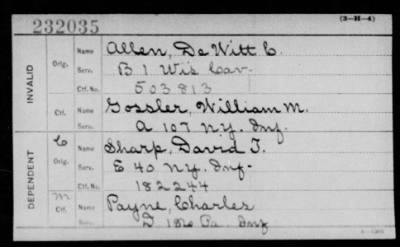 232035
(3-H-4)
INVALID
Orig. Name Allen, De Witt C.
Serv. B 1 Wis Cav.
Ctf. No. 503813
Ctf. Name Gossler, William M.
A 107 N.Y. Inf.
DEPENDENT
C Orig. Name Sharp, David T.
Serv. E 40 N.Y. Inf-
Ctf. No. 182244
M Ctf. Name Payne, Charles
Serv. D Pa. Inf